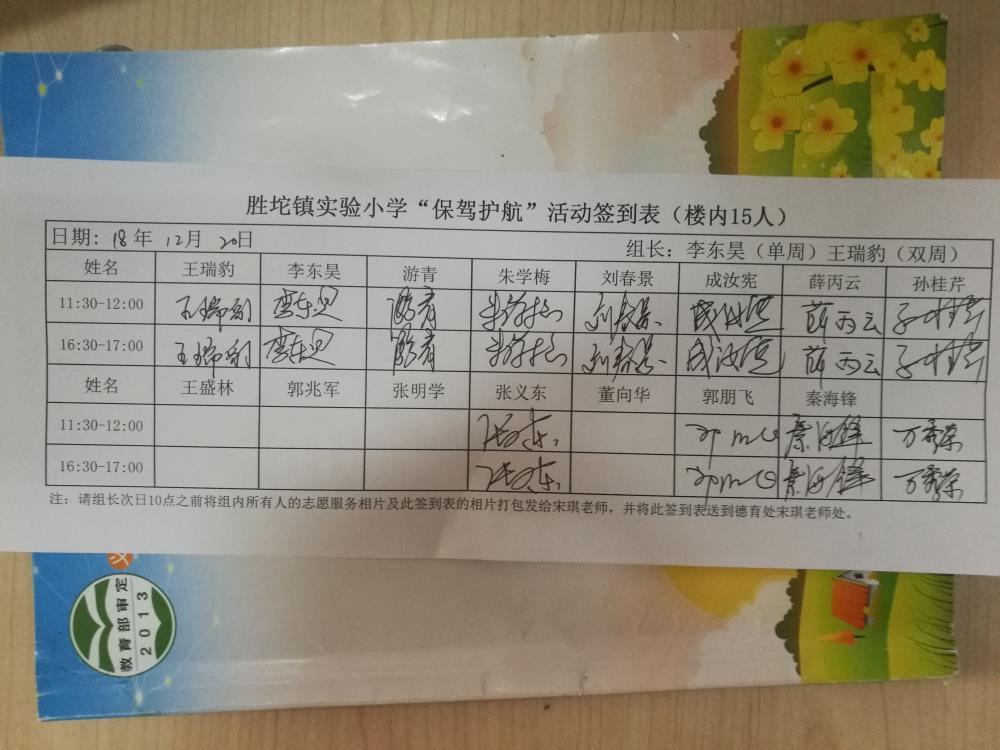 胜坨镇实验小学“保驾护航”活动签到表（楼内15人）
日期: 18年 12月 20日 组长: 李东昊（单周）王瑞豹（双周）
姓名 王瑞豹 李东昊 游青 朱学梅 刘春景 成汝宪 薛丙云 孙桂芹
11:30-12:00 王瑞豹 李东昊 游青 朱学梅 刘春景 成汝宪 薛丙云 孙桂芹
16:30-17:00 王瑞豹 李东昊 游青 朱学梅 刘春景 成汝宪 薛丙云 孙桂芹
姓名 王盛林 郭兆军 张明学 张义东 董向华 郭朋飞 秦海锋
11:30-12:00 张义东 秦海锋
16:30-17:00 张义东 秦海锋
注: 请组长次日10点之前将组内所有人的志愿服务相片及此签到表的相片打包发给宋琪老师，并将此签到表送到德育处宋琪老师处。
教育部审定
2013